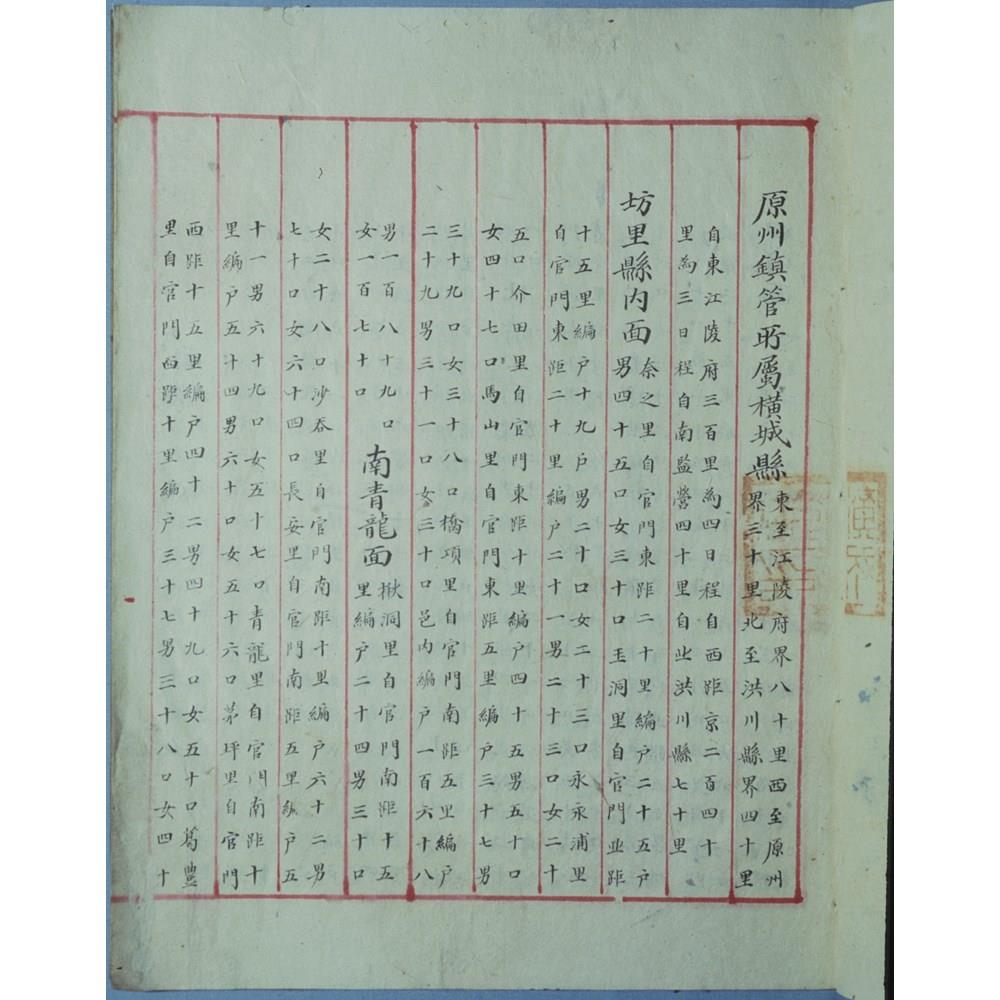 原州鎮管所屬橫城縣
東至江陵府界八十里西至原州
界三十里北至洪川縣界四十里
自東江陵府三百里為四日程自西距京二百四十
里為三日程自南監營四十里自北洪川縣七十里
坊里縣內面
奈之里自官門東距二十里編户二十五户
男四十五口女三十口玉洞里自官門北距
十五里編户十九户男二十口女二十三口永永浦里
自官門東距二十里編户二十一男二十三口女二十
五口介田里自官門東距十里編户四十五男五十口
女四十七口馬山里自官門東距五里編户三十七男
三十九口女三十八口橋項里自官門南距五里編户
二十九男三十一口女三十口邑內編户一百六十八
男一百八十九口
女一百七十口
南青龍面
楸洞里自官門南距十五
里編户二十四男三十口
女二十八口沙呑里自官門南距十里編户六十二男
七十口女六十四口長妄里自官門南距五里編户五
十一男六十九口女五十七口青龍里自官門南距十
里編户五十四男六十口女五十六口茅坪里自官門
西距十五里編户四十二男四十九口女五十口篤豊
里自官門西距十里編户三十七男三十八口女四十